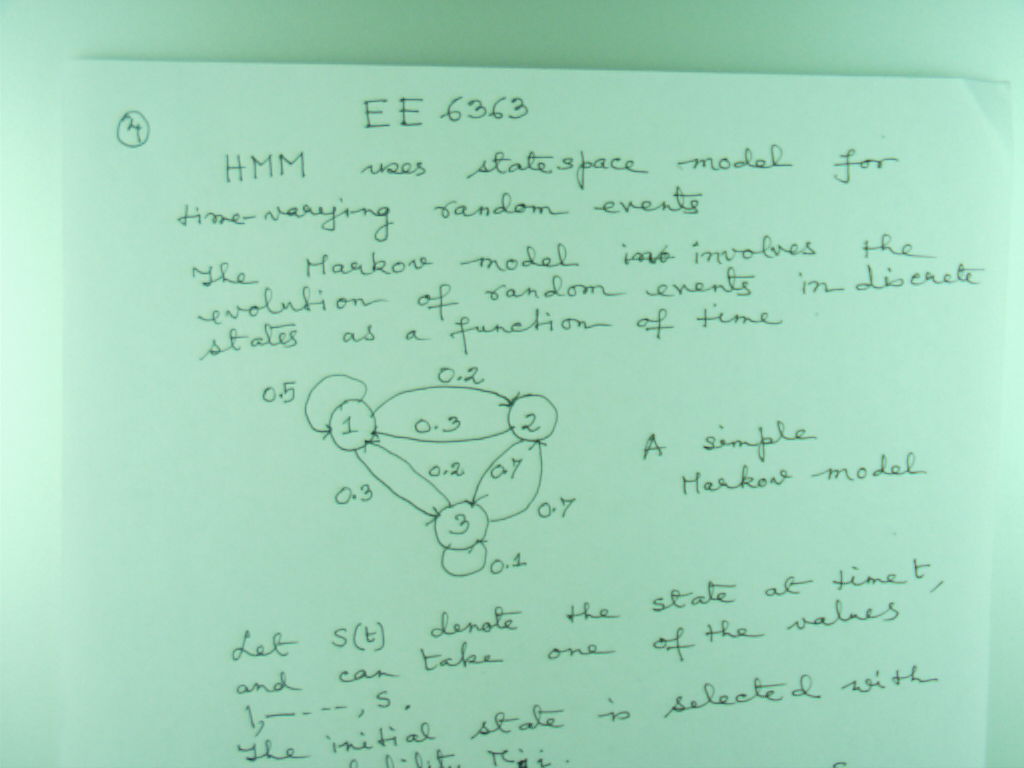 4
EE 6363
HMM uses state space model for
time-varying random events
The Markov model involves the
evolution of random events in discrete
states as a function of time
0.5
0.2
1
0.3
2
0.2
0.7
0.3
3
0.7
0.1
A simple
Markov model
Let S(t) denote the state at time t,
and can take one of the values
1,----, S.
The initial state is selected with